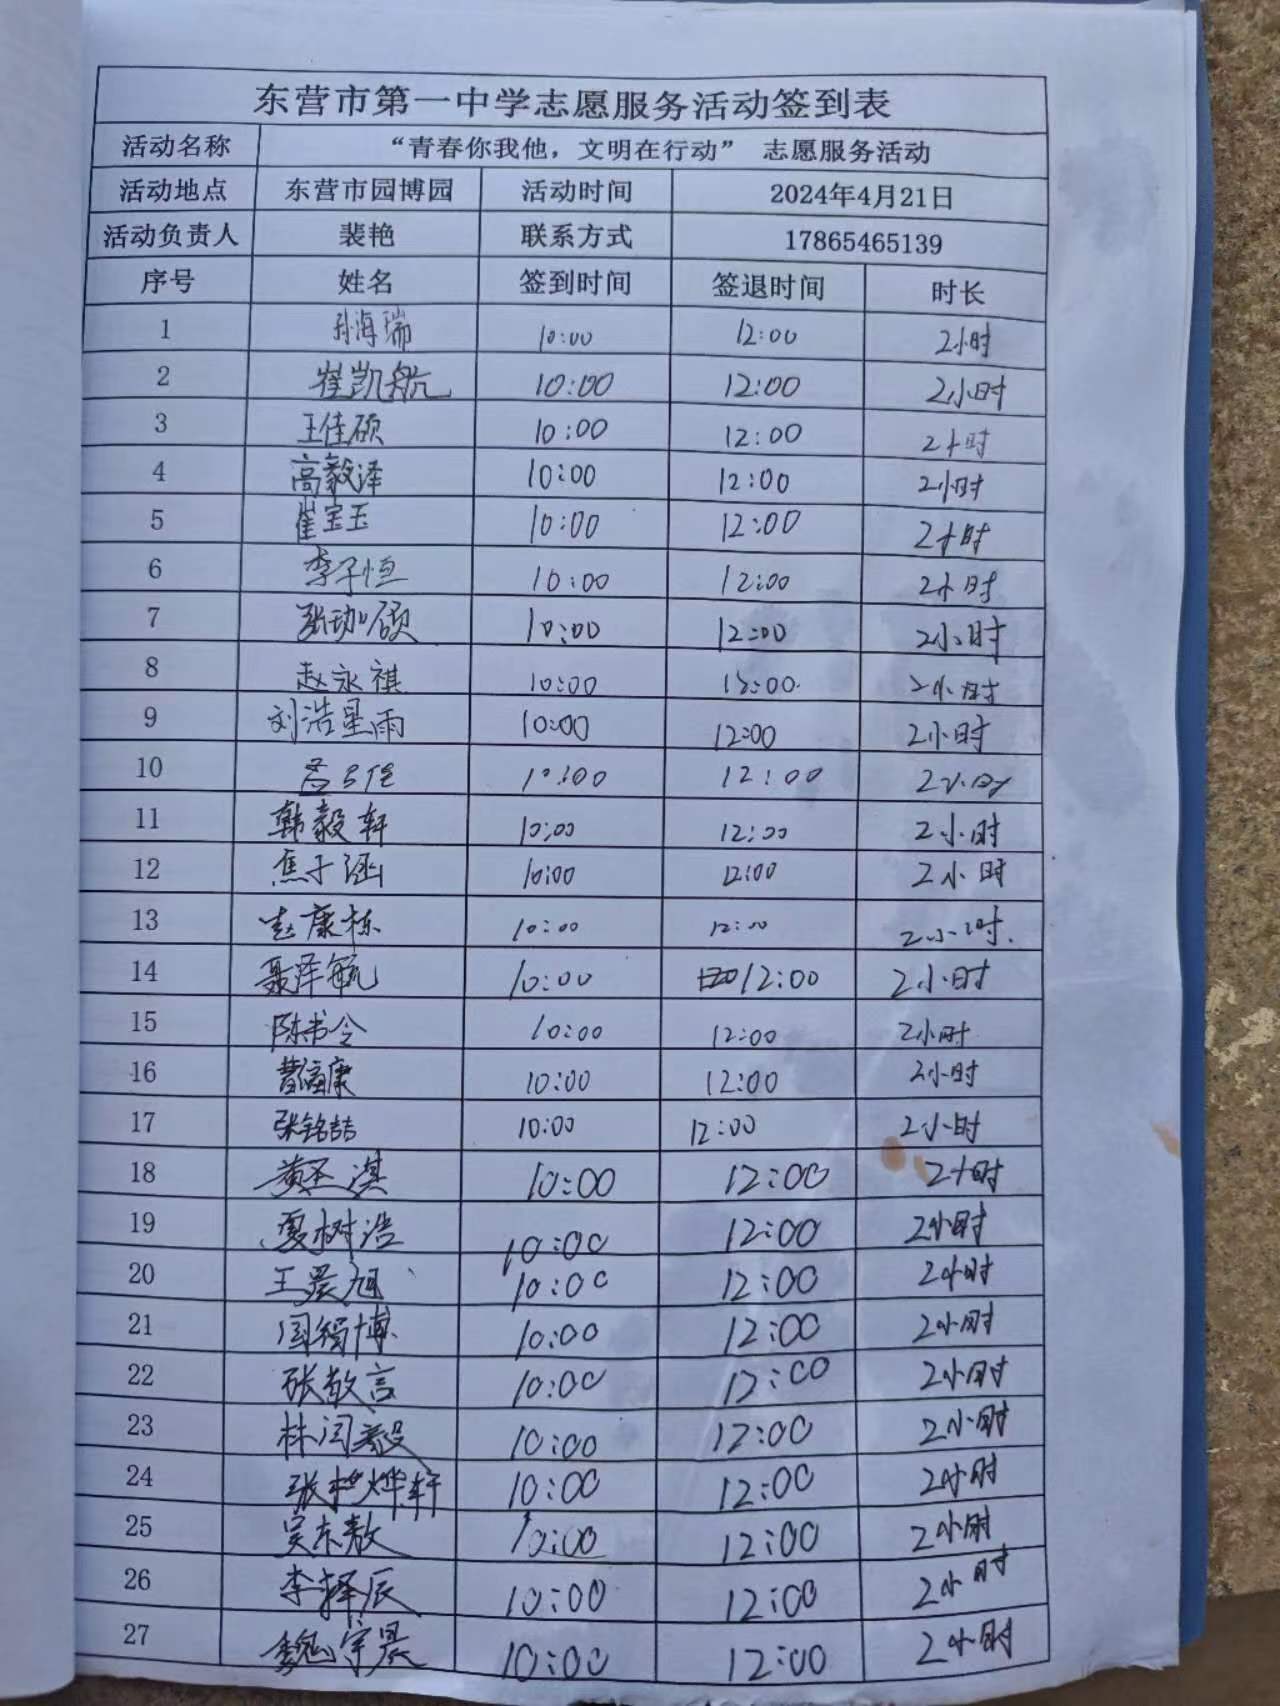 东营市第一中学志愿服务活动签到表
活动名称 “青春你我他，文明在行动” 志愿服务活动
活动地点 东营市园博园 活动时间 2024年4月21日
活动负责人 裴艳 联系方式 17865465139
序号 姓名 签到时间 签退时间 时长
1 孙海瑞 10:00 12:00 2小时
2 崔凯航 10:00 12:00 2小时
3 王佳硕 10:00 12:00 2小时
4 高毅泽 10:00 12:00 2小时
5 崔宝玉 10:00 12:00 2小时
6 李子恒 10:00 12:00 2小时
7 张珈硕 10:00 12:00 2小时
8 赵永祺 10:00 12:00 2小时
9 刘浩星雨 10:00 12:00 2小时
10 10:00 12:00 2小时
11 韩毅轩 10:00 12:00 2小时
12 焦子涵 10:00 12:00 2小时
13 赵康栋 10:00 12:00 2小时
14 聂泽毓 10:00 12:00 2小时
15 陈书令 10:00 12:00 2小时
16 10:00 12:00 2小时
17 张铭喆 10:00 12:00 2小时
18 黄圣淇 10:00 12:00 2小时
19 夏树浩 10:00 12:00 2小时
20 王晨旭 10:00 12:00 2小时
21 10:00 12:00 2小时
22 张敬言 10:00 12:00 2小时
23 林闰毅 10:00 12:00 2小时
24 10:00 12:00 2小时
25 吴东敖 10:00 12:00 2小时
26 李择辰 10:00 12:00 2小时
27 魏宇晨 10:00 12:00 2小时